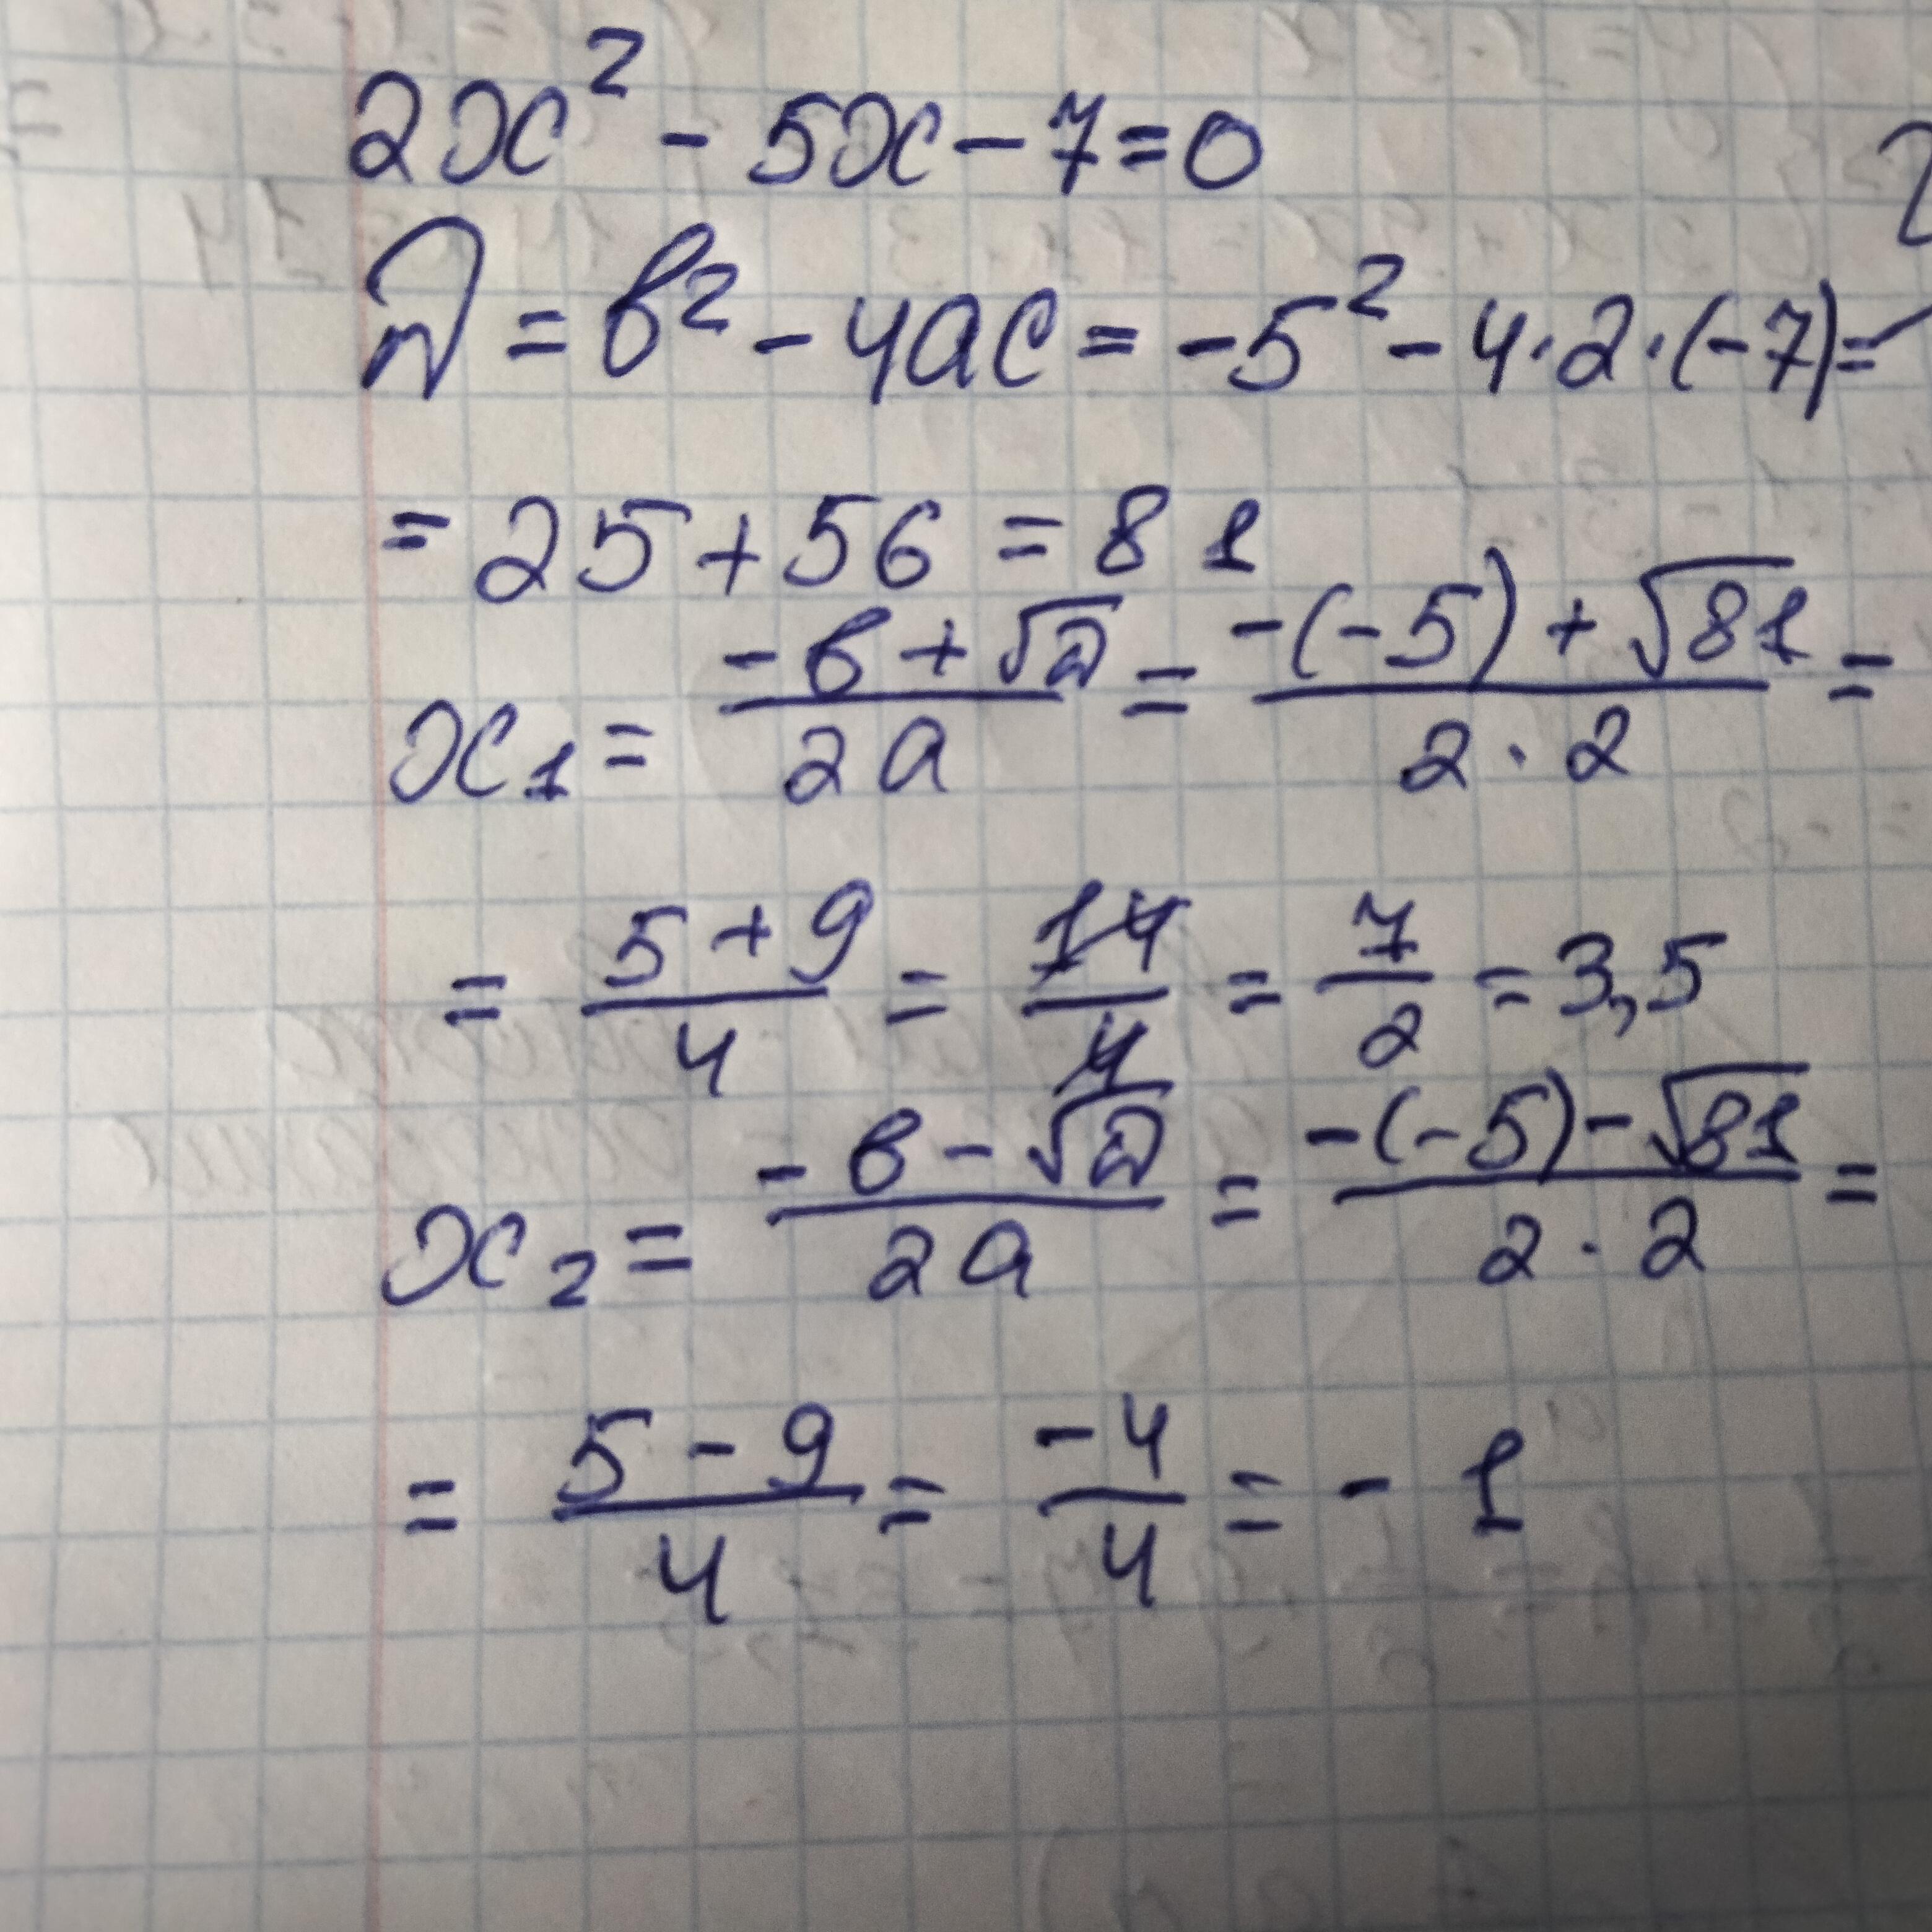 2x² - 5x - 7 = 0
D = b² - 4ac = -5² - 4·2·(-7) =
= 25 + 56 = 81
x₁ = (-b + √D)/(2a) = (-(-5) + √81)/(2·2) =
= (5 + 9)/4 = 14/4 = 7/2 = 3,5
x₂ = (-b - √D)/(2a) = (-(-5) - √81)/(2·2) =
= (5 - 9)/4 = (-4)/4 = -1